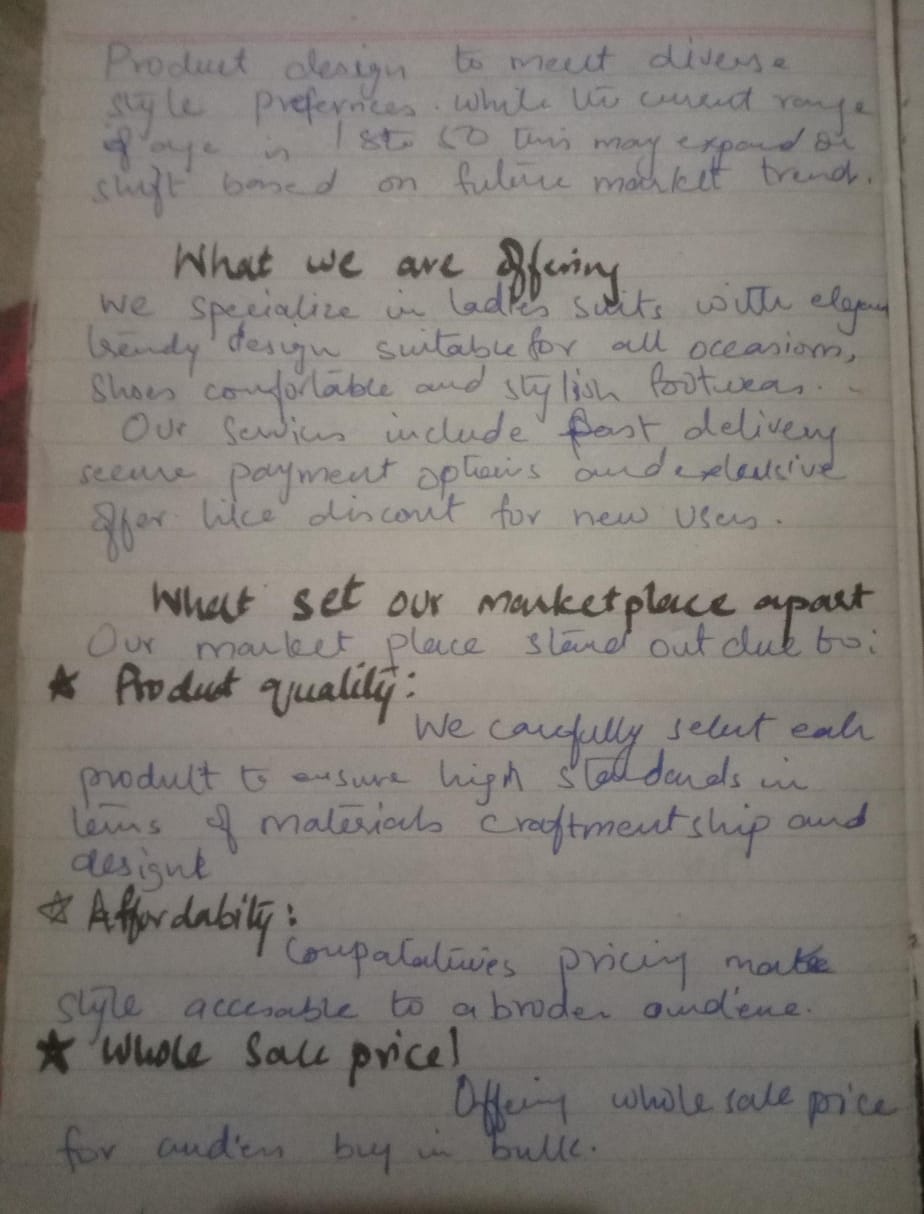 Product design to meet diverse
style prefernces. while the current range
of age is 18 to 50 this may expand or
shift based on future market trend.
What we are offering
we specialize in ladies suits with elegant
trendy design suitable for all occasions,
shoes comfortable and stylish footwear.
Our services include fast delivery
secure payment options and exclusive
offer like discout for new users.
What set our marketplace apart
Our market place stand out due to:
★ Product quality:
We carefully select each
product to ensure high standards in
terms of materials craftmentship and
design
☆ Affordabity:
pricing make
style accesable to a broder audience.
★ Whole sale price!
Offering whole sale price
for audien buy in bulk.